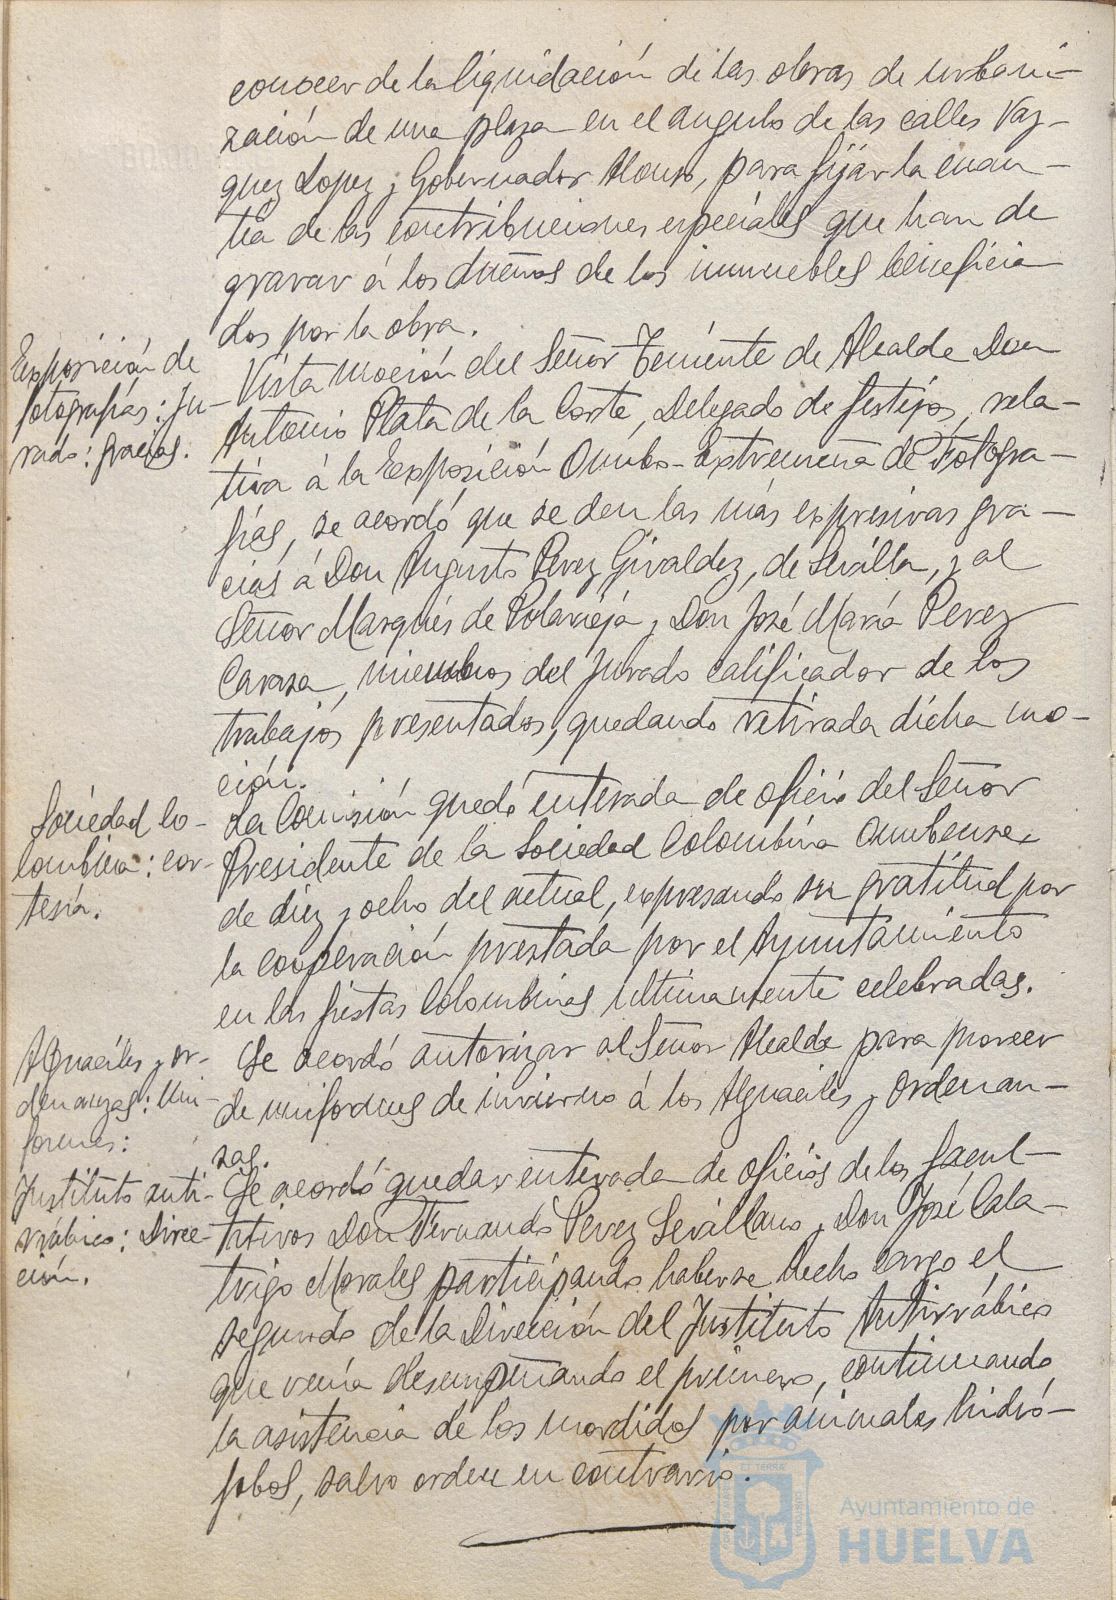 conocer de la liquidación de las obras de urbani-
zación de una plaza en el angulo de las calles Vaz-
quez Lopez y Gobernador Alonso, para fijar la cuan-
tia de las contribuciones especiales que han de
gravar á los dueños de los inmuebles beneficia
dos por la obra.
Exposición de
fotografías: Ju-
rado: gracias.
Vista moción del Señor Teniente de Alcalde Don
Antonio Plata de la Corte, Delegado de festejos, rela-
tiva á la Exposición Onubo-Extremeña de Fotogra-
fías, se acordó que se den las más expresivas gra-
cias á Don Augusto Perez Giraldez, de Sevilla, y al
Señor Marqués de Polavieja y Don José María Perez
Carasa, miembros del Jurado calificador de los
trabajos presentados, quedando retirada dicha mo-
ción.
Sociedad Co-
lombina: cor-
tesía.
La Comisión quedó enterada de oficio del Señor
Presidente de la Sociedad Colombina Onubense,
de diez y ocho del actual, expresando su gratitud por
la cooperación prestada por el Ayuntamiento
en las fiestas Colombinas ultimamente celebradas.
Alguaciles y or-
denanzas: Uni-
formes:
Se acordó autorizar al Señor Alcalde para proveer
de uniformes de invierno á los Alguaciles y Ordenan-
zas.
Instituto anti-
rrábico: Direc-
ción.
Se acordó quedar enterada de oficios de los facul-
tativos Don Fernando Perez Sevillano y Don José Cala-
trigo Morales participando haberse hecho cargo el
segundo de la Dirección del Instituto Antirrábico
que venía desempeñando el primero, continuando
la asistencia de los mordidos por animales hidró-
fobos, salvo orden en contrario.
Ayuntamiento de
HUELVA